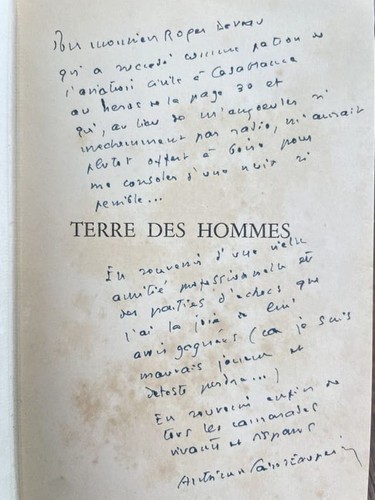 Pour monsieur Roger
qui a succédé comme patron de
l'aviation civile à Casablanca
au héros de la page 30 et
qui, au lieu de m'engueuler si
méchamment par radio, m'aurait
plutôt offert à boire pour
me consoler d'une nuit si
pénible...
TERRE DES HOMMES
En souvenir d'une vieille
amitié professionnelle et
des parties d'échecs que
j'ai la joie de lui
avoir gagnées (car je suis
mauvais joueur et
déteste perdre...)
En souvenir enfin de
tous les camarades
vivants et disparus
Antoine de Saint Exupéry